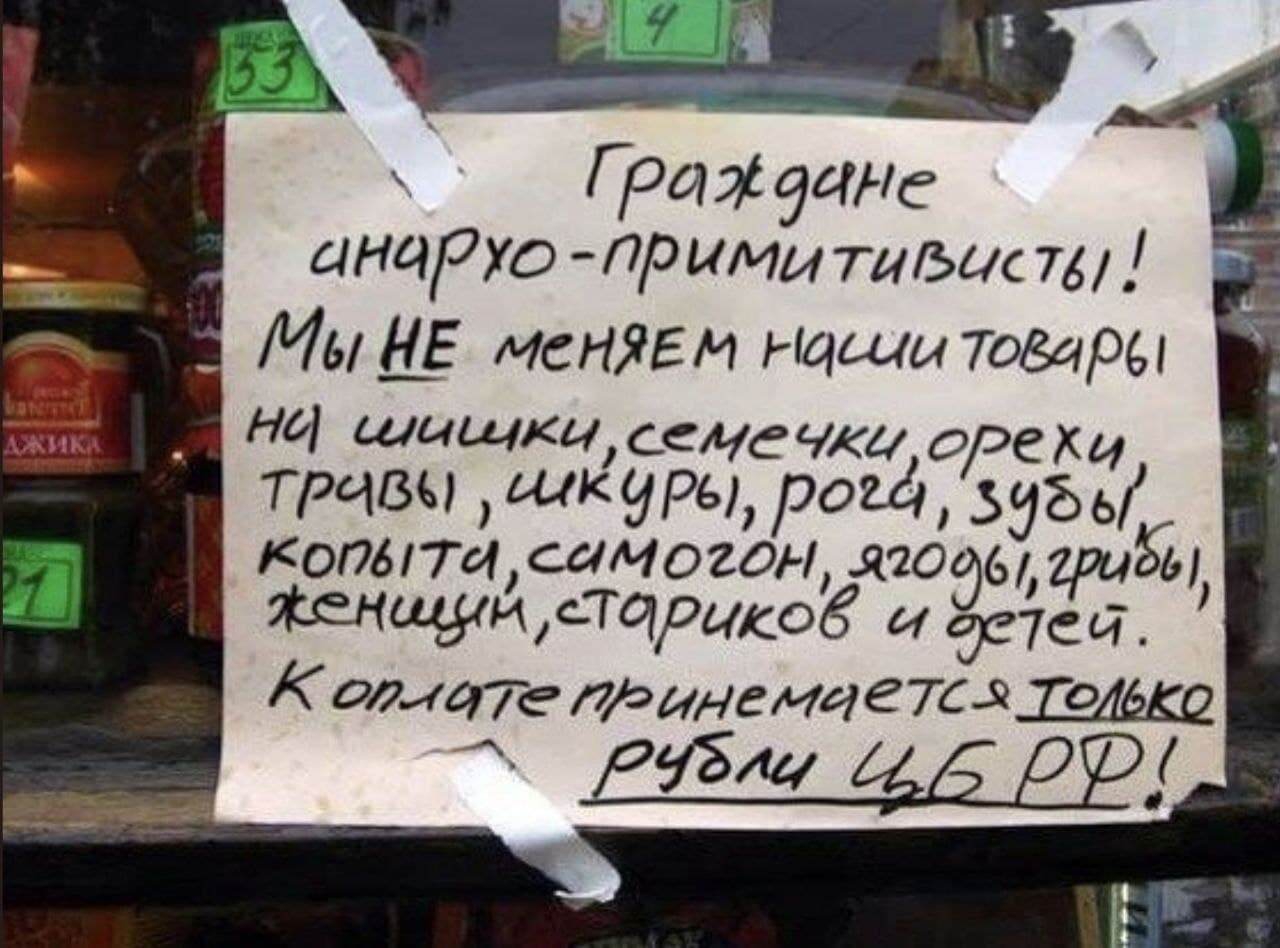 53
4
Граждане
анархо-примитивисты!
Мы НЕ меняем наши товары
на шишки, семечки, орехи,
травы, шкуры, рога, зубы,
копыта, самогон, ягоды, грибы,
женщин, стариков и детей.
К оплате принемается только
рубли ЦБ РФ!
ДЖИКА
21